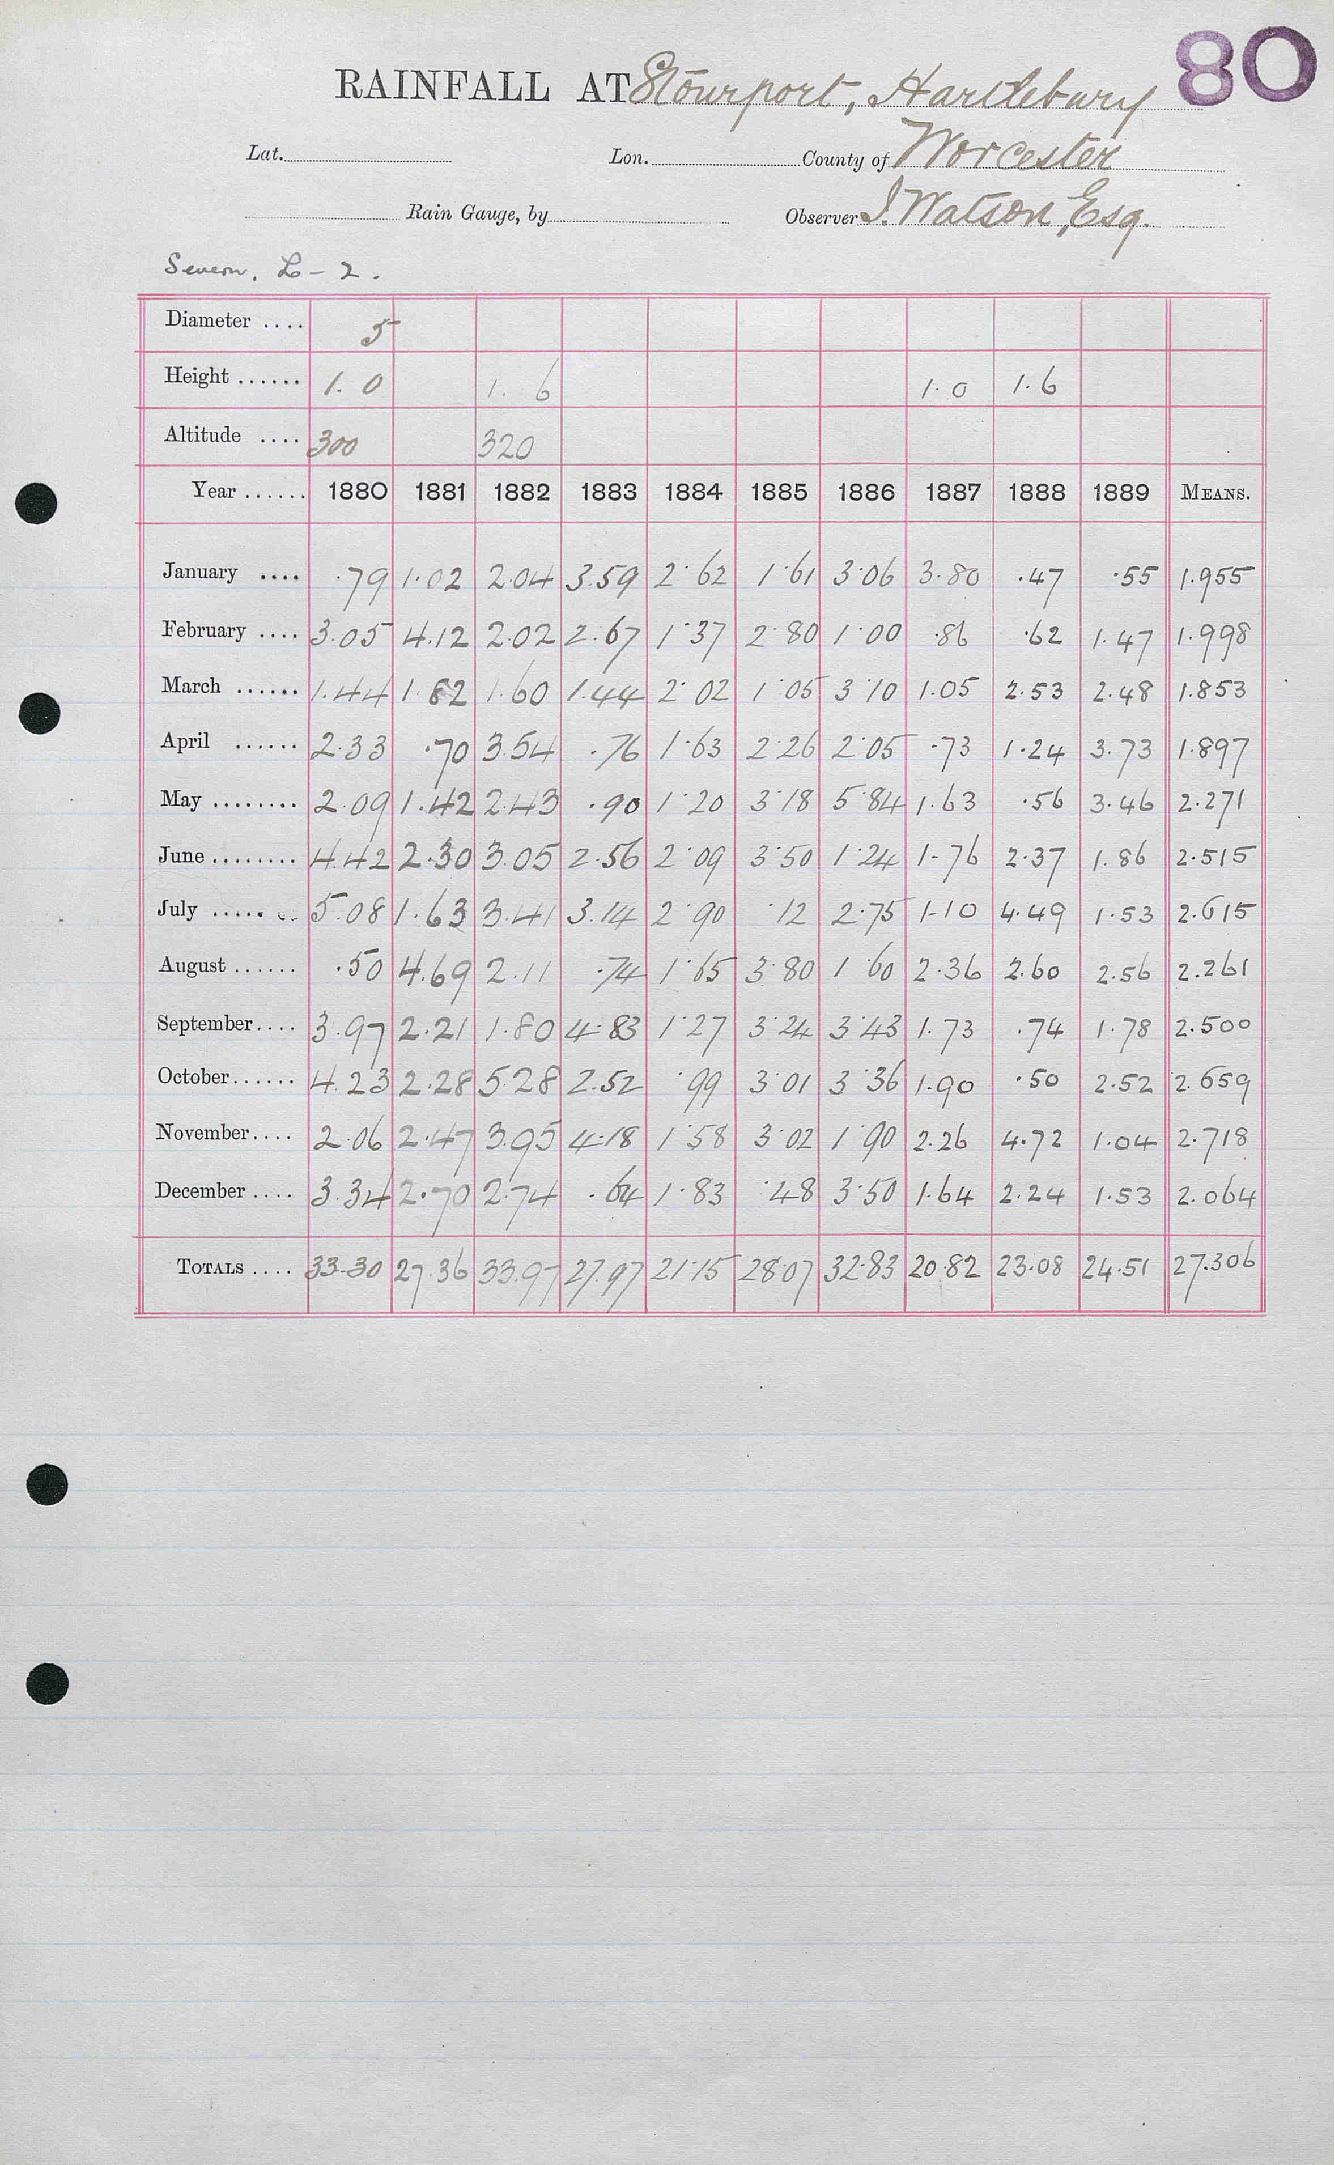 80
RAINFALL AT Stourport, Hartlebury
Lat. Lon. County of Worcester
Rain Gauge, by Observer J. Watson, Esq.
Severn. L - 2.
Diameter .... 5
Height ...... 1. 0 1. 6 1. 0 1. 6
Altitude .... 300 320
Year ...... 1880 1881 1882 1883 1884 1885 1886 1887 1888 1889 MEANS.
January .... .79 1.02 2.04 3.59 2.62 1.61 3.06 3.80 .47 .55 1.955
February .... 3.05 4.12 2.02 2.67 1.37 2.80 1.00 .86 .62 1.47 1.998
March ...... 1.44 1.82 1.60 1.44 2.02 1.05 3.10 1.05 2.53 2.48 1.853
April ...... 2.33 .70 3.54 .76 1.63 2.26 2.05 .73 1.24 3.73 1.897
May ........ 2.09 1.42 2.43 .90 1.20 3.18 5.84 1.63 .56 3.46 2.271
June ........ 4.42 2.30 3.05 2.56 2.09 3.50 1.24 1.76 2.37 1.86 2.515
July ........ 5.08 1.63 3.41 3.14 2.90 .12 2.75 1.10 4.49 1.53 2.615
August ...... .50 4.69 2.11 .74 1.65 3.80 1.60 2.36 2.60 2.56 2.261
September.... 3.97 2.21 1.80 4.83 1.27 3.24 3.43 1.73 .74 1.78 2.500
October...... 4.23 2.28 5.28 2.52 .99 3.01 3.36 1.90 .50 2.52 2.659
November.... 2.06 2.47 3.95 4.18 1.58 3.02 1.90 2.26 4.72 1.04 2.718
December .... 3.34 2.70 2.74 .64 1.83 .48 3.50 1.64 2.24 1.53 2.064
TOTALS .... 33.30 27.36 33.97 27.97 21.15 28.07 32.83 20.82 23.08 24.51 27.306